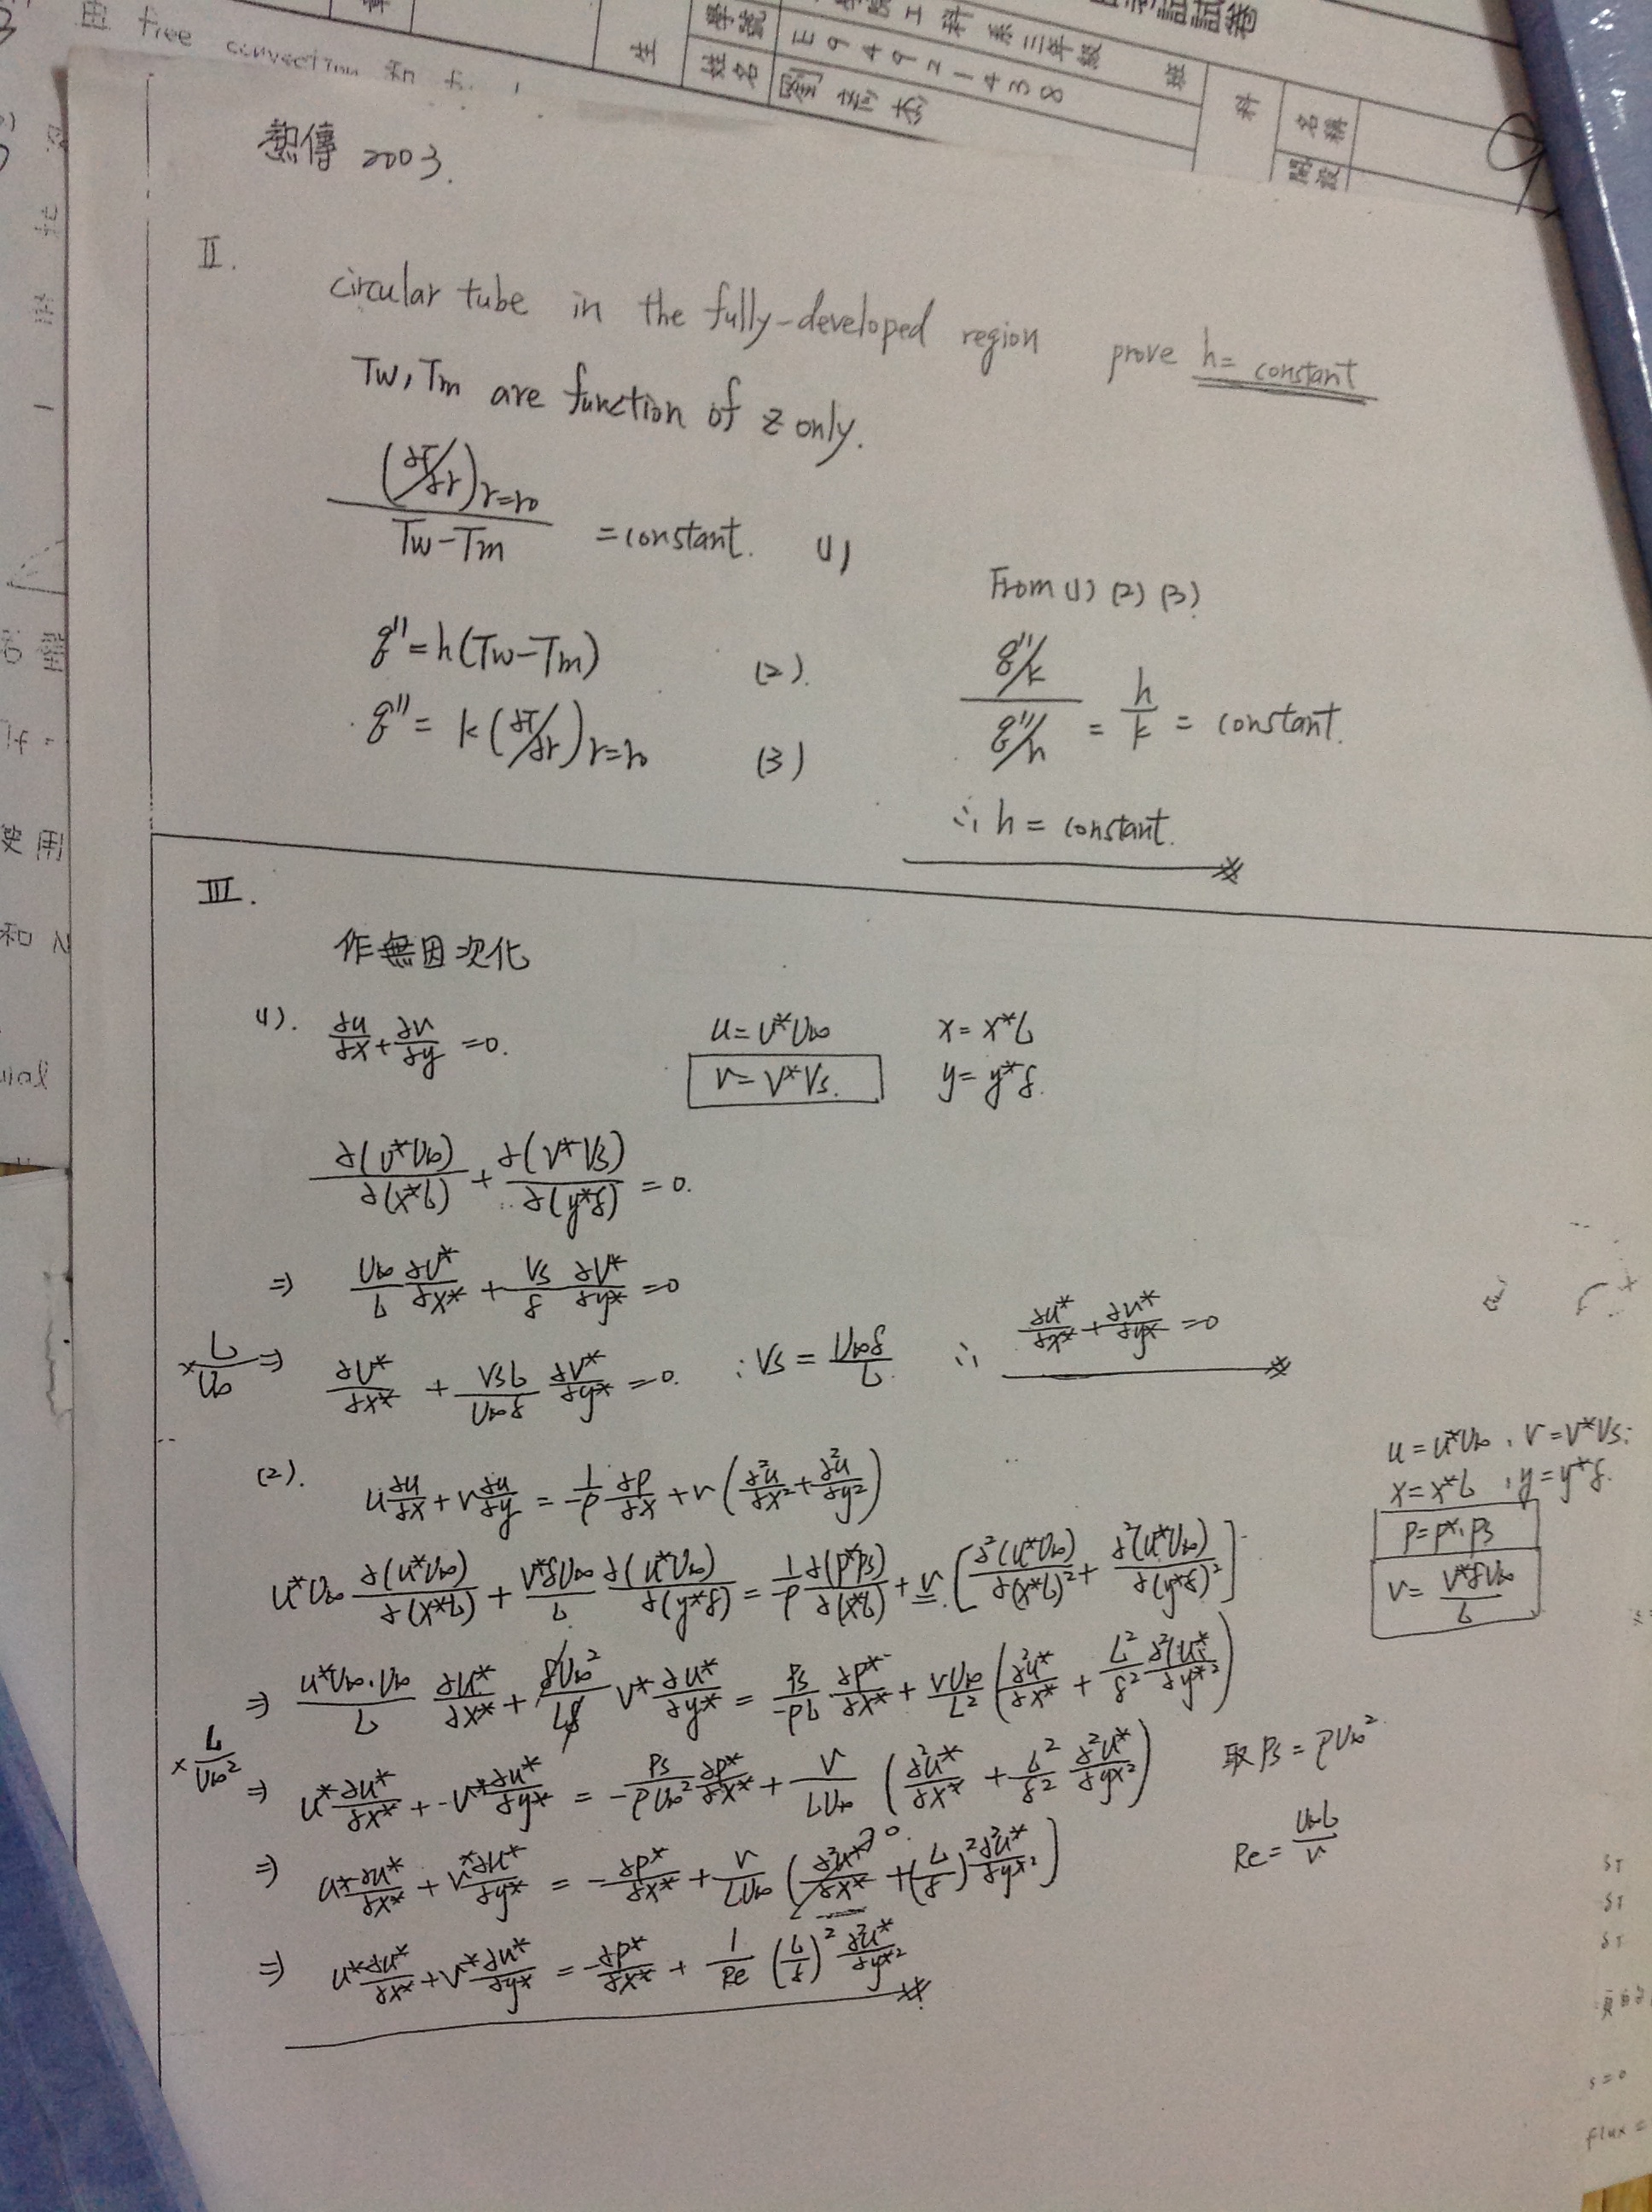 由 free convection 和
生
學號 E94921438
姓名
工科系三年級 班
試卷
科
名稱
開設
熱傳 2003.
II.
circular tube in the fully-developed region prove h= constant
Tw, Tm are function of z only.
(∂T/∂r)r=r0 / (Tw-Tm) = constant. (1)
From (1) (2) (3)
q"=h(Tw-Tm) (2).
q"= k(∂T/∂r)r=r0 (3)
(q"/k)/(q"/h) = h/k = constant.
∴ h = constant.
III.
作無因次化
(1). ∂u/∂x+∂v/∂y =0. u=u*U∞ x=x*L
v=v*Vs. y=y*δ.
∂(u*U∞)/∂(x*L) + ∂(v*Vs)/∂(y*δ) =0.
⇒ U∞/L ∂u*/∂x* + Vs/δ ∂v*/∂y* =0
×L/U∞ ⇒ ∂u*/∂x* + VsL/U∞δ ∂v*/∂y* =0. ∵Vs = U∞δ/L ∴ ∂u*/∂x*+∂v*/∂y* =0
(2). u∂u/∂x+v∂u/∂y = 1/-ρ ∂p/∂x +ν(∂²u/∂x²+∂²u/∂y²)
u=u*U∞, v=v*Vs.
x=x*L, y=y*δ.
P=P*·Ps
v= v*δU∞/L
u*U∞ ∂(u*U∞)/∂(x*L) + v*δU∞/L ∂(u*U∞)/∂(y*δ) = 1/-ρ ∂(p*Ps)/∂(x*L) + ν[∂²(u*U∞)/∂(x*L)² + ∂²(u*U∞)/∂(y*δ)²]
⇒ u*U∞·U∞/L ∂u*/∂x* + δU∞²/Lδ v*∂u*/∂y* = Ps/-ρL ∂p*/∂x* + νU∞/L² (∂²u*/∂x* + L²/δ² ∂²u*/∂y*²)
×L/U∞² ⇒ u*∂u*/∂x* + -v*∂u*/∂y* = -Ps/ρU∞² ∂p*/∂x* + ν/LU∞ (∂²u*/∂x* + L²/δ² ∂²u*/∂y*²) 取 Ps = ρU∞²
⇒ u*∂u*/∂x* + v*∂u*/∂y* = -∂p*/∂x* + ν/LU∞ (∂²u*/∂x* ↗0. +(L/δ)²∂²u*/∂y*²) Re= U∞L/ν
⇒ u*∂u*/∂x*+v*∂u*/∂y* = -∂p*/∂x* + 1/Re (L/δ)² ∂²u*/∂y*²
使用
s=0
flux =